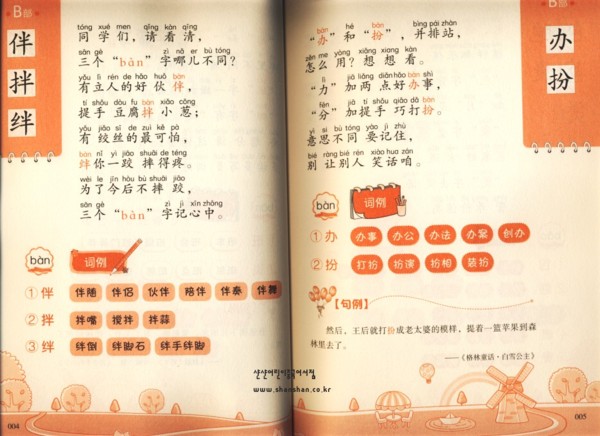 B部
伴
拌
绊
tóng xué men qǐng kàn qīng
同学们，请看清，
sān gè "bàn" zì nǎ er bù tóng
三个“bàn”字哪儿不同？
yǒu lì rén de hǎo huǒ bàn
有立人的好伙伴，
tí shǒu dòu fu bàn xiǎo cōng
提手豆腐拌小葱；
yǒu jiǎo sī de zuì kě pà
有绞丝的最可怕，
bàn nǐ yì jiāo shuāi de téng
绊你一跤摔得疼。
wèi le jīn hòu bù shuāi jiāo
为了今后不摔跤，
sān gè "bàn" zì jì xīn zhōng
三个“bàn”字记心中。
bàn
词例
①伴 伴随 伴侣 伙伴 陪伴 伴奏 伴舞
②拌 拌嘴 搅拌 拌蒜
③绊 绊倒 绊脚石 绊手绊脚
004
B部
办
扮
bàn hé bàn bìng pái zhàn
“办”和“扮”，并排站，
zěn me yòng xiǎng xiang kàn
怎么用？想想看。
lì jiā liǎng diǎn hǎo bàn shì
“力”加两点好办事，
fēn jiā tí shǒu qiǎo dǎ bàn
“分”加提手巧打扮。
yì si bù tóng yào jì zhù
意思不同要记住，
bié ràng bié rén xiào hua zán
别让别人笑话咱。
bàn
词例
①办 办事 办公 办法 办案 创办
②扮 打扮 扮演 扮相 装扮
【句例】
然后，王后就打扮成老太婆的模样，提着一篮苹果到森
林里去了。
——《格林童话·白雪公主》
005
샨샨어린이중국어서점
www.shanshan.co.kr